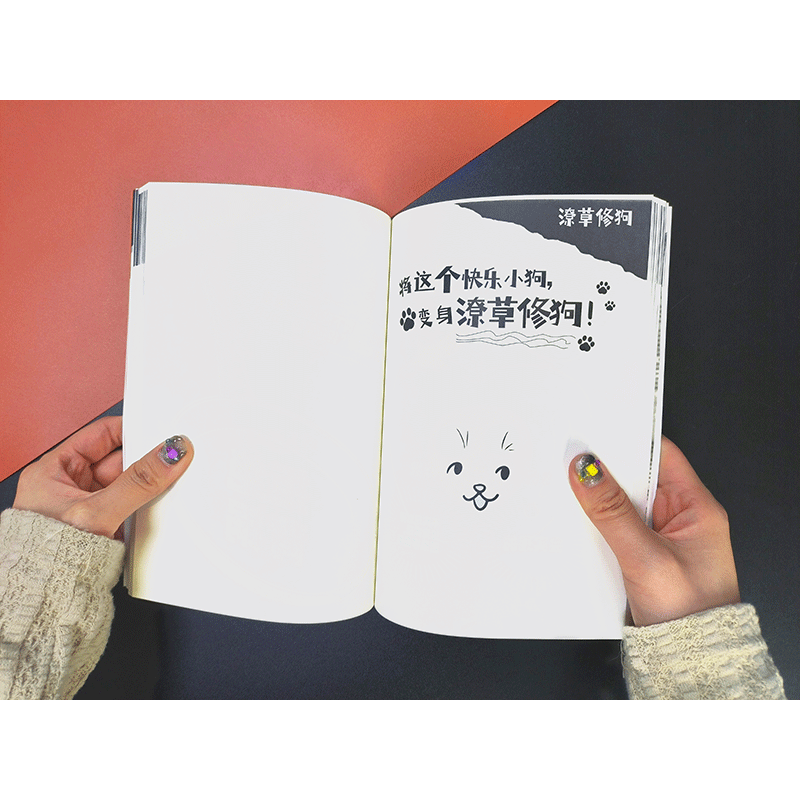 潦草修狗
将这个快乐小狗,
变身潦草修狗!